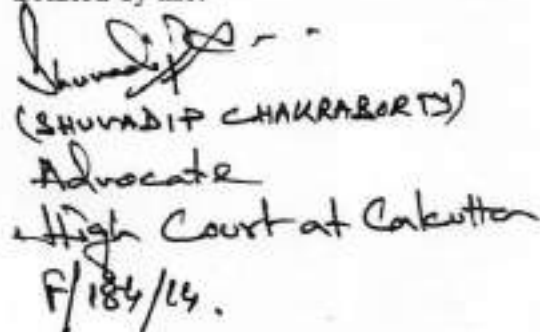 Shuvadip
(SHUVADIP CHAKRABORTY)
Advocate
High Court at Calcutta
F/184/14.